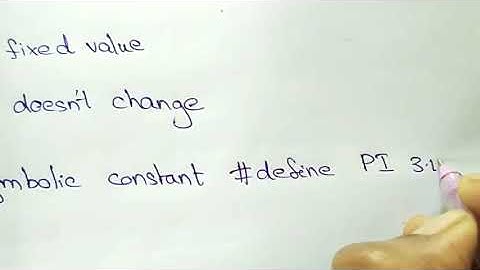 fixed value
doesn't change
mbolic constant #define PI 3.1